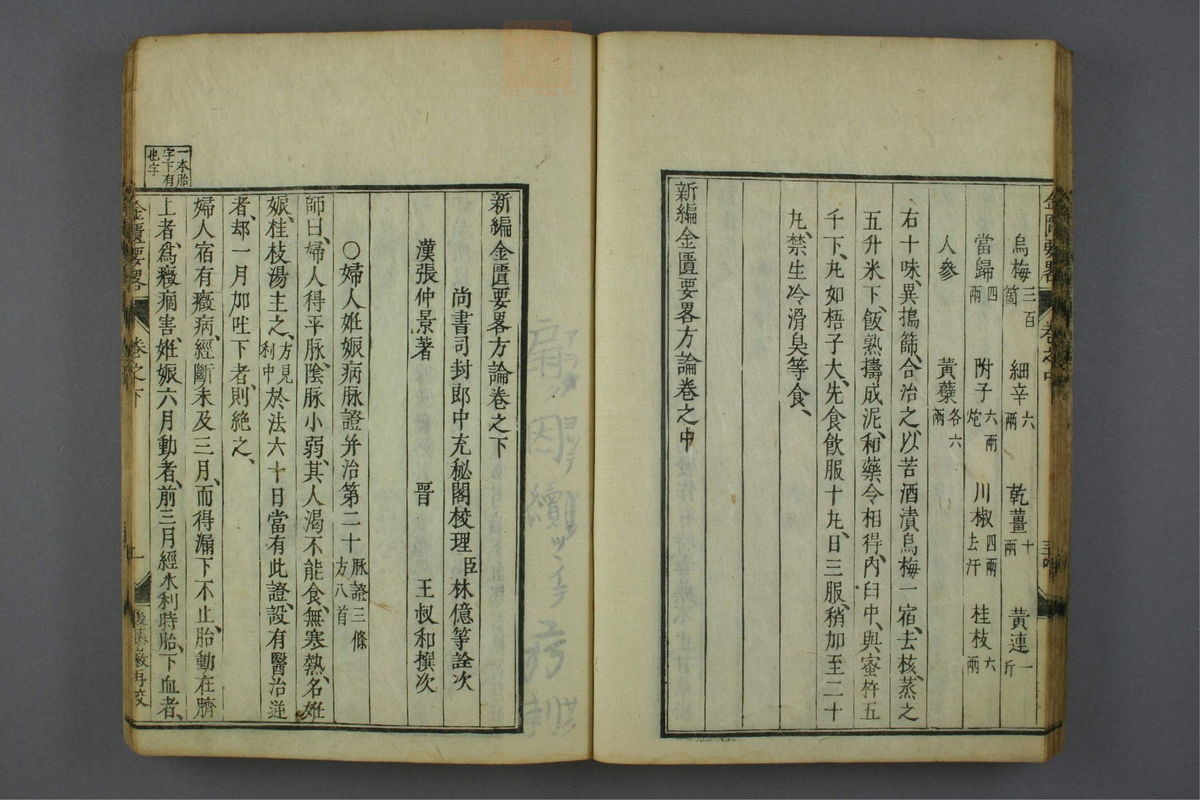 烏梅三百箇 細辛六兩 乾薑十兩 黃連一斤
當歸四兩 附子六兩炮 川椒四兩去汗 桂枝六兩
人參 黃蘗各六兩
右十味、異搗篩、合治之、以苦酒漬烏梅一宿、去核、蒸之
五升米下、飯熟擣成泥、和藥令相得、内臼中、與蜜杵五
千下、丸如梧子大、先食飲服十丸、日三服、稍加至二十
丸、禁生冷滑臭等食、
新編金匱要畧方論卷之中
新編金匱要畧方論卷之下
尚書司封郎中充秘閣校理臣林億等詮次
漢張仲景著 晉 王叔和撰次
○婦人姙娠病脉證并治第二十脉證三條方八首
師曰、婦人得平脉、陰脉小弱、其人渴不能食、無寒熱、名姙
娠、桂枝湯主之、方見利中於法六十日當有此證、設有醫治逆
者、却一月加吐下者、則絶之、
婦人宿有癥病、經斷未及三月、而得漏下不止、胎動在臍
上者、爲癥痼害姙娠六月動者、前三月經水利時胎、下血者、
一本胎字下有也字
金匱要畧 卷之下